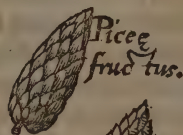 Piceę
fruc tus.